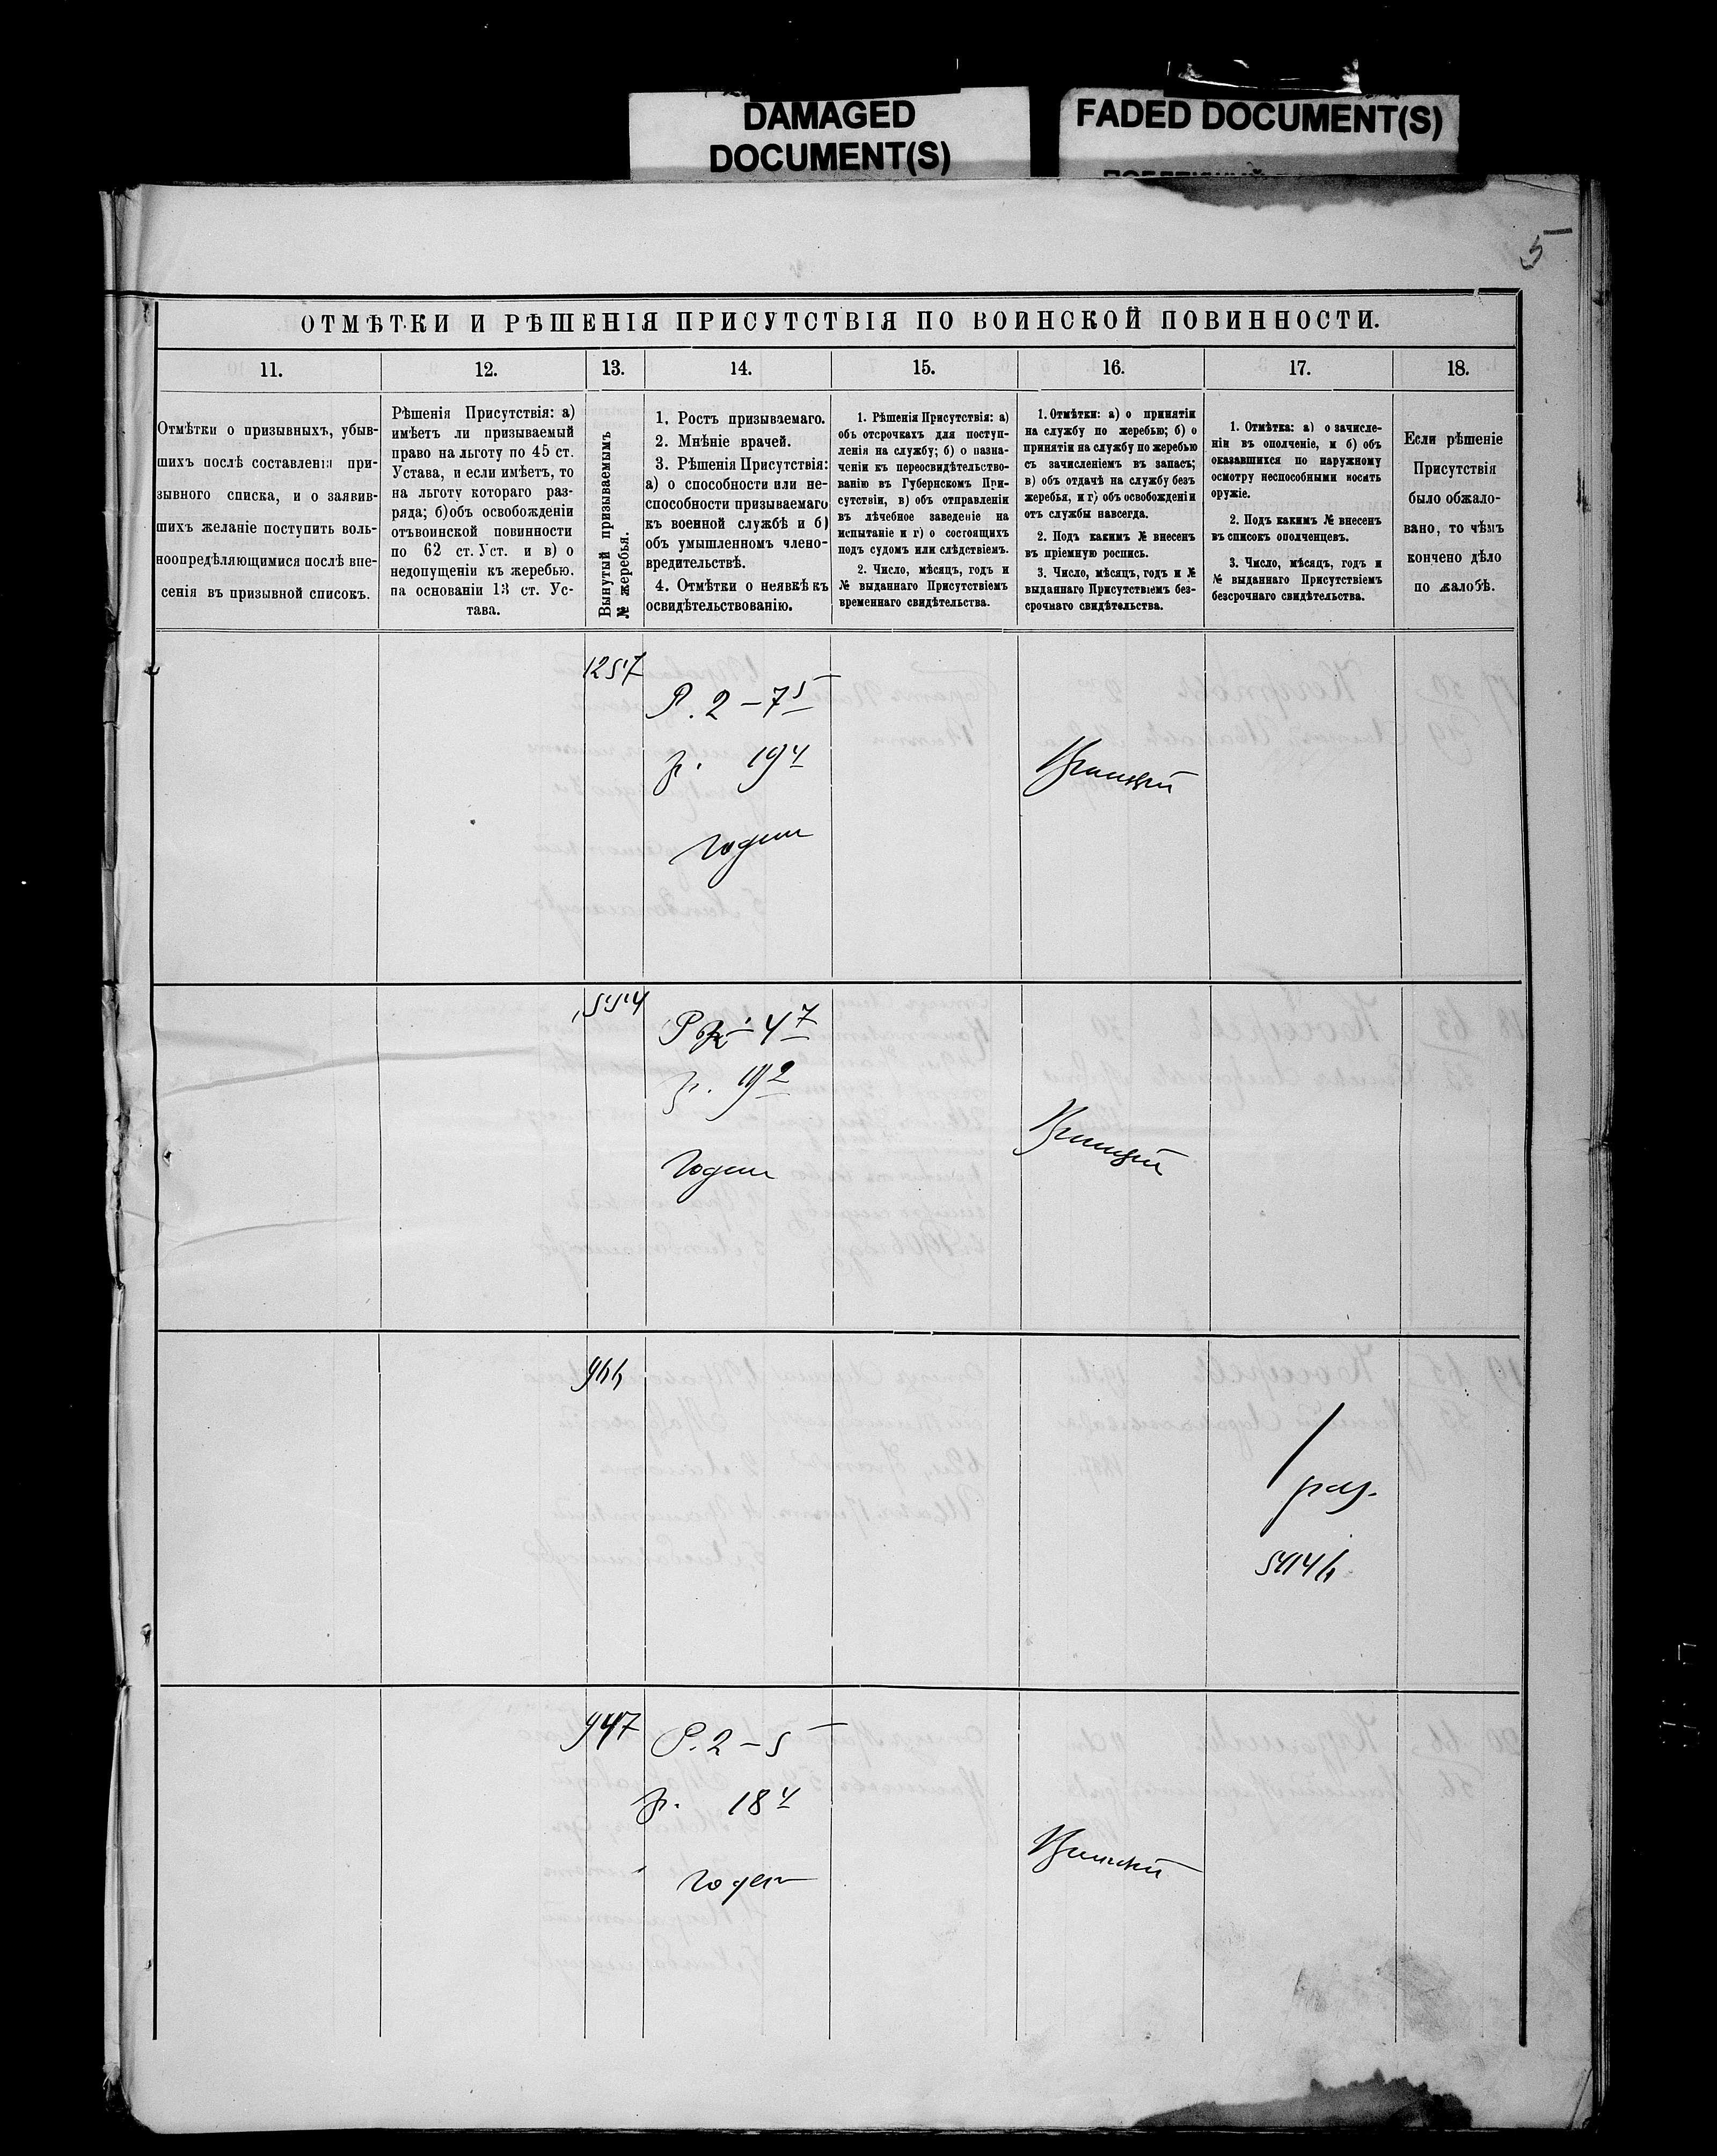 DAMAGED
DOCUMENT(S)
FADED DOCUMENT(S)
5
ОТМѢТКИ И РѢШЕНІЯ ПРИСУТСТВІЯ ПО ВОИНСКОЙ ПОВИННОСТИ.
11.
12.
13.
14.
15.
16.
17.
18.
Отмѣтки о призывныхъ, убыв-
шихъ послѣ составленія при-
зывного списка, и о заявив-
шихъ желаніе поступить воль-
ноопредѣляющимися послѣ вне-
сенія въ призывной списокъ.
Рѣшенія Присутствія: а)
имѣетъ ли призываемый
право на льготу по 45 ст.
Устава, и если имѣетъ, то
на льготу котораго раз-
ряда; б) объ освобожденіи
отъ воинской повинности
по 62 ст. Уст. и в) о
недопущеніи къ жеребью.
на основаніи 13 ст. Ус-
тава.
Вынутый призываемымъ
№ жеребья.
1. Ростъ призываемаго.
2. Мнѣніе врачей.
3. Рѣшенія Присутствія:
а) о способности или не-
способности призываемаго
къ военной службѣ и б)
объ умышленномъ члено-
вредительствѣ.
4. Отмѣтки о неявкѣ къ
освидѣтельствованію.
1. Рѣшенія Присутствія: а)
объ отсрочкахъ для поступ-
ленія на службу; б) о назна-
ченіи къ переосвидѣтельство-
ванію въ Губернскомъ При-
сутствіи, в) объ отправленіи
въ лѣчебное заведеніе на
испытаніе и г) о состоящихъ
подъ судомъ или слѣдствіемъ.
2. Число, мѣсяцъ, годъ и
№ выданнаго Присутствіемъ
временнаго свидѣтельства.
1. Отмѣтки: а) о принятіи
на службу по жеребью; б) о
принятіи на службу по жеребью
съ зачисленіемъ въ запасъ;
в) объ отдачѣ на службу безъ
жеребья, и г) объ освобожденіи
отъ службы навсегда.
2. Подъ какимъ № внесенъ
въ пріемную роспись.
3. Число, мѣсяцъ, годъ и №
выданнаго Присутствіемъ без-
срочнаго свидѣтельства.
1. Отмѣтка: а) о зачисле-
ніи въ ополченіе, и б) объ
оказавшихся по наружному
осмотру неспособными носить
оружіе.
2. Подъ какимъ № внесенъ
въ списокъ ополченцевъ.
3. Число, мѣсяцъ, годъ и
№ выданнаго Присутствіемъ
безсрочнаго свидѣтельства.
Если рѣшеніе
Присутствія
было обжало-
вано, то чѣмъ
кончено дѣло
по жалобѣ.
1257
Р. 2 – 7 5
г. 19 4
годен
Принятый
1554
4 7
г. 19 2
Годен
Принятый
966
1
раз.
947
Р. 2 – 5
г. 18 4
годен
Принятый